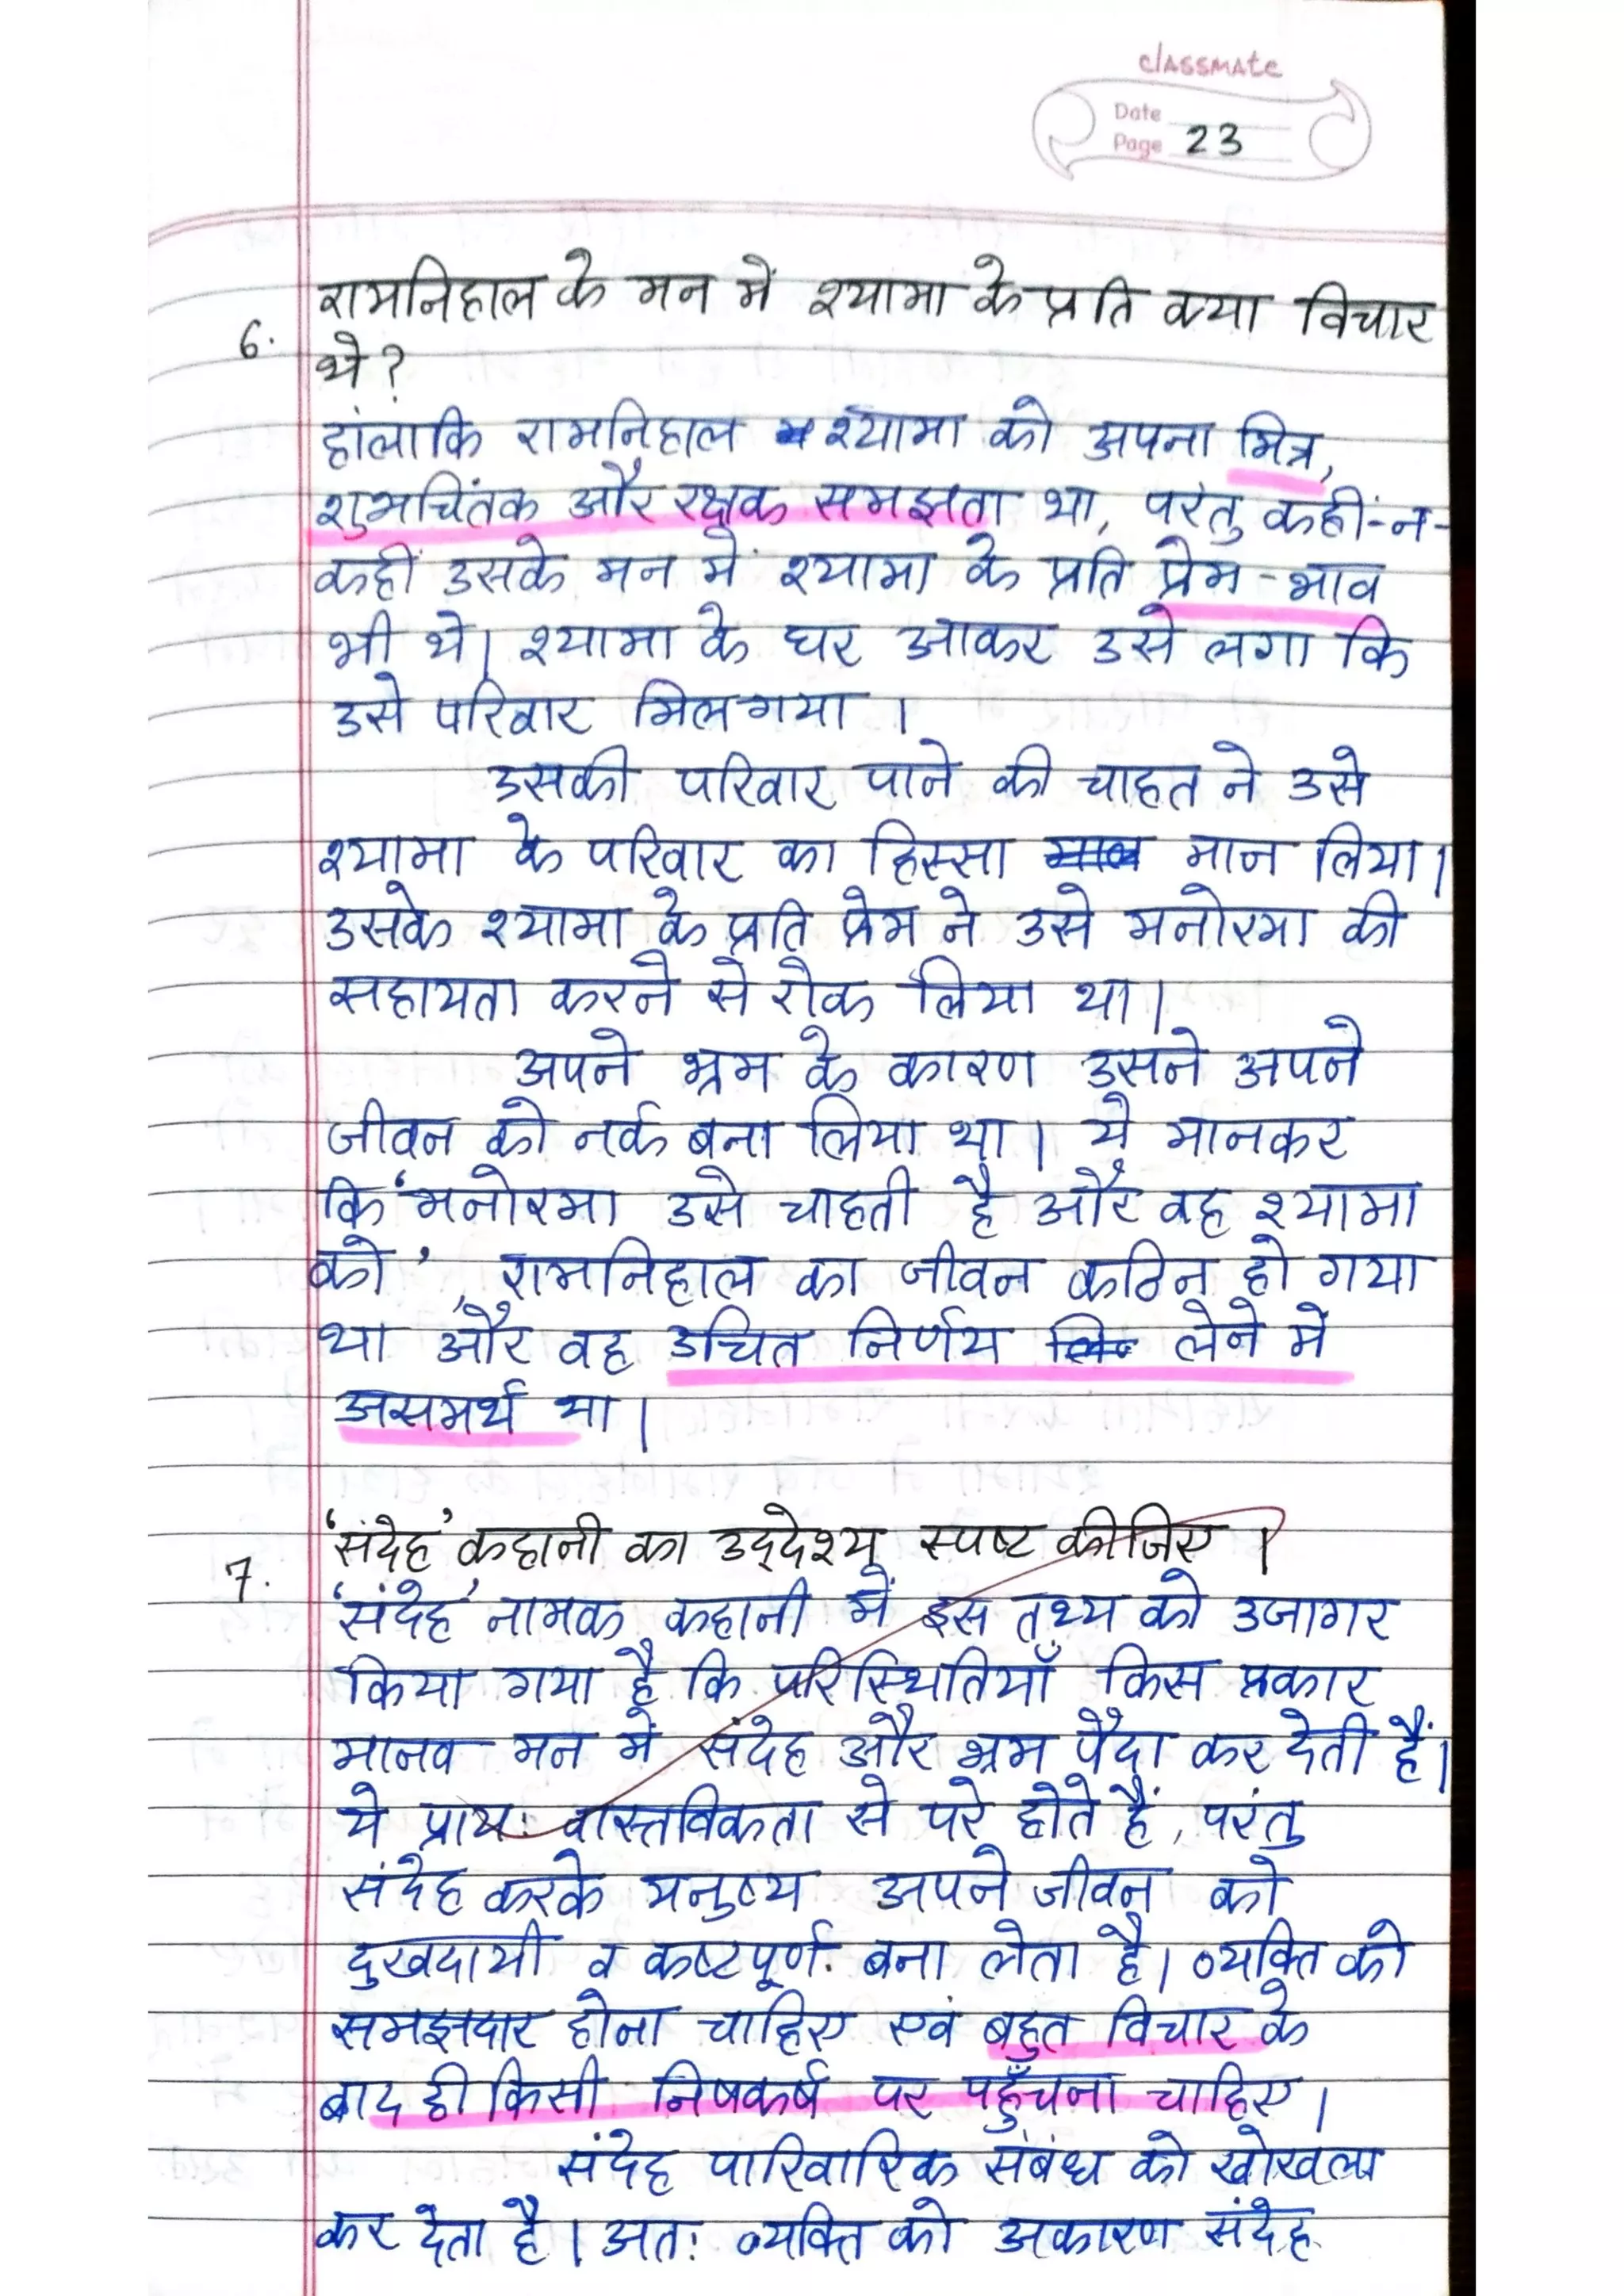 classmate
Date
Page 23
6. रामनिहाल के मन में श्यामा के प्रति क्या विचार
थे?
हांलाकि रामनिहाल श्यामा को अपना मित्र,
शुभचिंतक और रक्षक समझता था, परंतु कहीं-न-
कहीं उसके मन में श्यामा के प्रति प्रेम-भाव
भी थे। श्यामा के घर आकर उसे लगा कि
उसे परिवार मिल गया।
उसकी परिवार पाने की चाहत ने उसे
श्यामा के परिवार का हिस्सा मान लिया।
उसके श्यामा के प्रति प्रेम ने उसे मनोरमा की
सहायता करने से रोक लिया था।
अपने भ्रम के कारण उसने अपने
जीवन को नर्क बना लिया था। ये मानकर
कि 'मनोरमा उसे चाहती है और वह श्यामा
को', रामनिहाल का जीवन कठिन हो गया
था और वह उचित निर्णय लेने में
असमर्थ था।
7. 'संदेह' कहानी का उद्देश्य स्पष्ट कीजिए।
'संदेह' नामक कहानी में इस तथ्य को उजागर
किया गया है कि परिस्थितियाँ किस प्रकार
मानव मन में संदेह और भ्रम पैदा कर देती हैं।
ये प्रायः वास्तविकता से परे होते हैं, परंतु
संदेह करके मनुष्य अपने जीवन को
दुखदायी व कष्टपूर्ण बना लेता है। व्यक्ति को
समझदार होना चाहिए एवं बहुत विचार के
बाद ही किसी निषकर्ष पर पहुँचना चाहिए।
संदेह पारिवारिक संबंध को खोखला
कर देता है। अतः व्यक्ति को अकारण संदेह